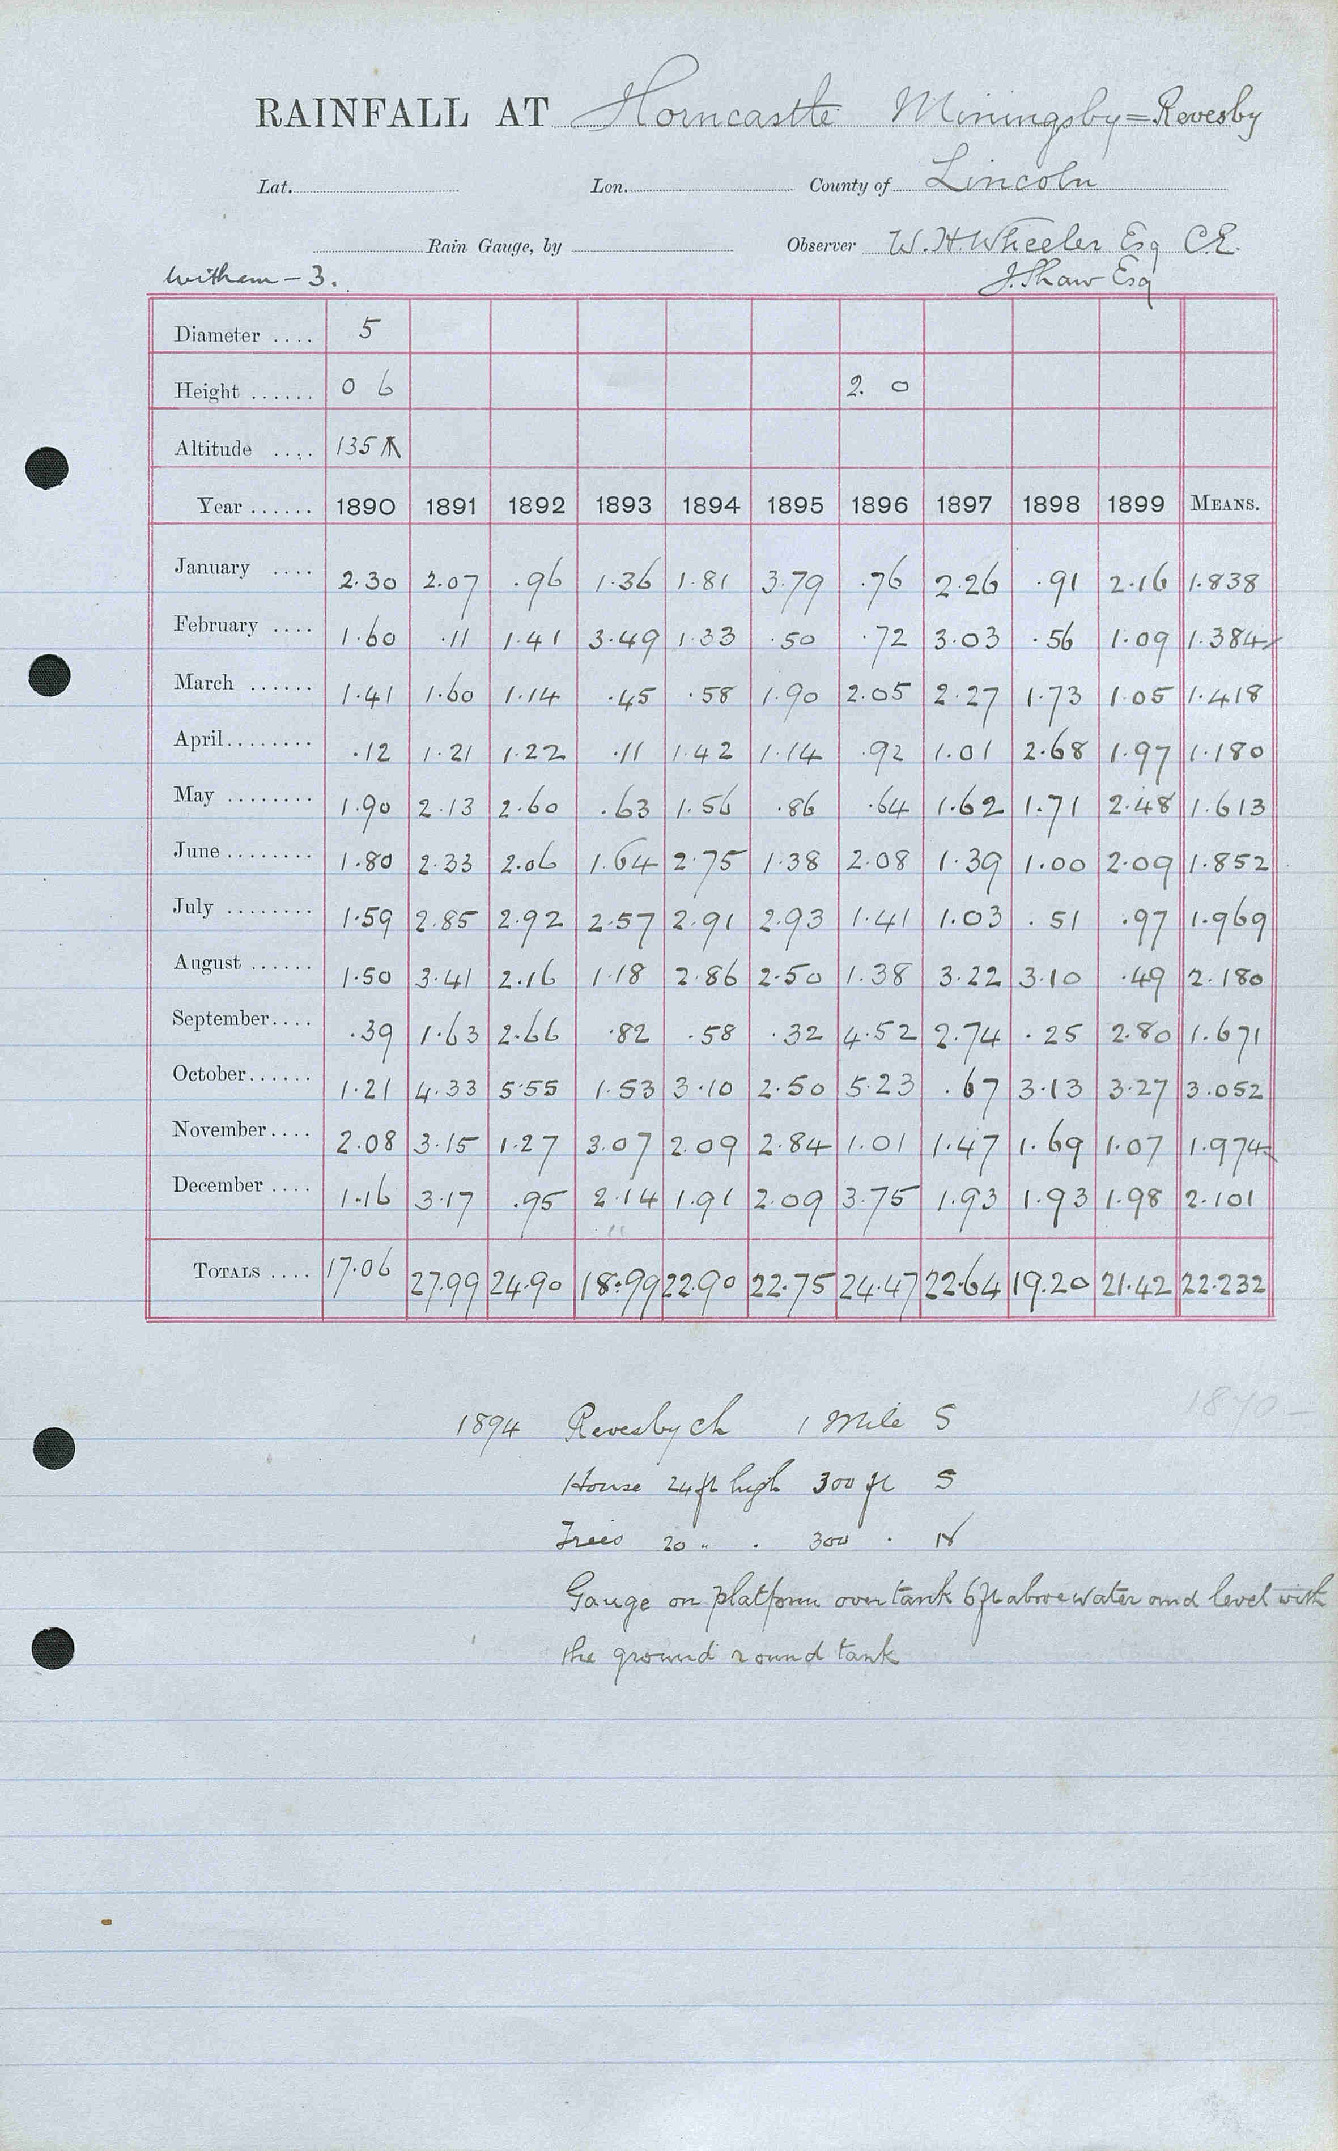 RAINFALL AT Horncastle Miningsby = Revesby
Lat. Lon. County of Lincoln
Rain Gauge, by Observer W. H Wheeler Esq C.E.
Witham - 3. J. Shaw Esq
Diameter .... 5
Height ...... 0 6 2. 0
Altitude .... 135
Year ...... 1890 1891 1892 1893 1894 1895 1896 1897 1898 1899 MEANS.
January .... 2.30 2.07 .96 1.36 1.81 3.79 .76 2.26 .91 2.16 1.838
February .... 1.60 .11 1.41 3.49 1.33 .50 .72 3.03 .56 1.09 1.384
March ...... 1.41 1.60 1.14 .45 .58 1.90 2.05 2.27 1.73 1.05 1.418
April........ .12 1.21 1.22 .11 1.42 1.14 .92 1.01 2.68 1.97 1.180
May ........ 1.90 2.13 2.60 .63 1.56 .86 .64 1.62 1.71 2.48 1.613
June ........ 1.80 2.33 2.06 1.64 2.75 1.38 2.08 1.39 1.00 2.09 1.852
July ........ 1.59 2.85 2.92 2.57 2.91 2.93 1.41 1.03 .51 .97 1.969
August ...... 1.50 3.41 2.16 1.18 2.86 2.50 1.38 3.22 3.10 .49 2.180
September.... .39 1.63 2.66 .82 .58 .32 4.52 2.74 .25 2.80 1.671
October...... 1.21 4.33 5.55 1.53 3.10 2.50 5.23 .67 3.13 3.27 3.052
November.... 2.08 3.15 1.27 3.07 2.09 2.84 1.01 1.47 1.69 1.07 1.974
December .... 1.16 3.17 .95 2.14 1.91 2.09 3.75 1.93 1.93 1.98 2.101
TOTALS .... 17.06 27.99 24.90 18.99 22.90 22.75 24.47 22.64 19.20 21.42 22.232
1870-
1894 Revesby Ch 1 Mile S
House 24 ft high 300 ft S
Trees 20 " . 300 . N
Gauge on platform over tank 6 ft above water and level with
the ground round tank